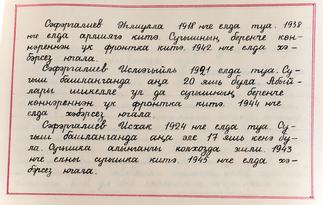 Сәфәргалиев Әхмәдулла 1918 нче елда туа. 1938
нче елда армиягә китә. Сугышның беренче көн-
нәреннән үк фронтка китә. 1942 нче елда хә-
бәрсез югала.
Сәфәргалиев Исмәгыйль 1921 елда туа. Су-
гыш башланганда аңа 20 яшь була. Абый-
лары шикелле ул да сугышның беренче
көннәреннән үк фронтка китә. 1944 нче
елда хәбәрсез югала.
Сәфәргалиев Исхак 1924 нче елда туа. Су-
гыш башланганда аңа әле 17 яшь кенә бу-
ла. Сугышка алынганчы колхозда эшли. 1943
нче елны сугышка китә. 1945 нче елда хә-
бәрсез югала.